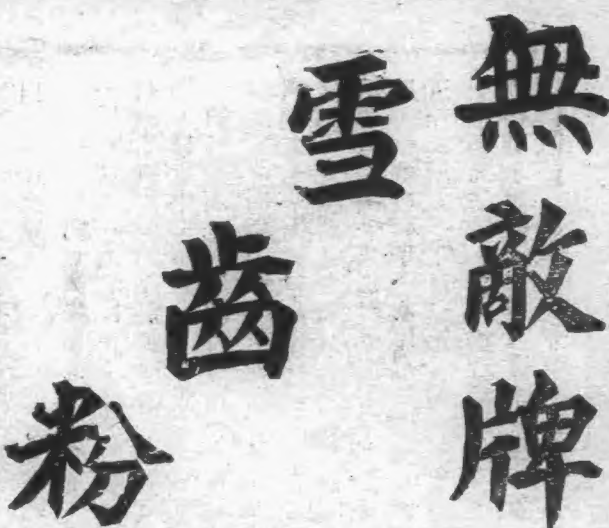 無敵牌
雪齒粉